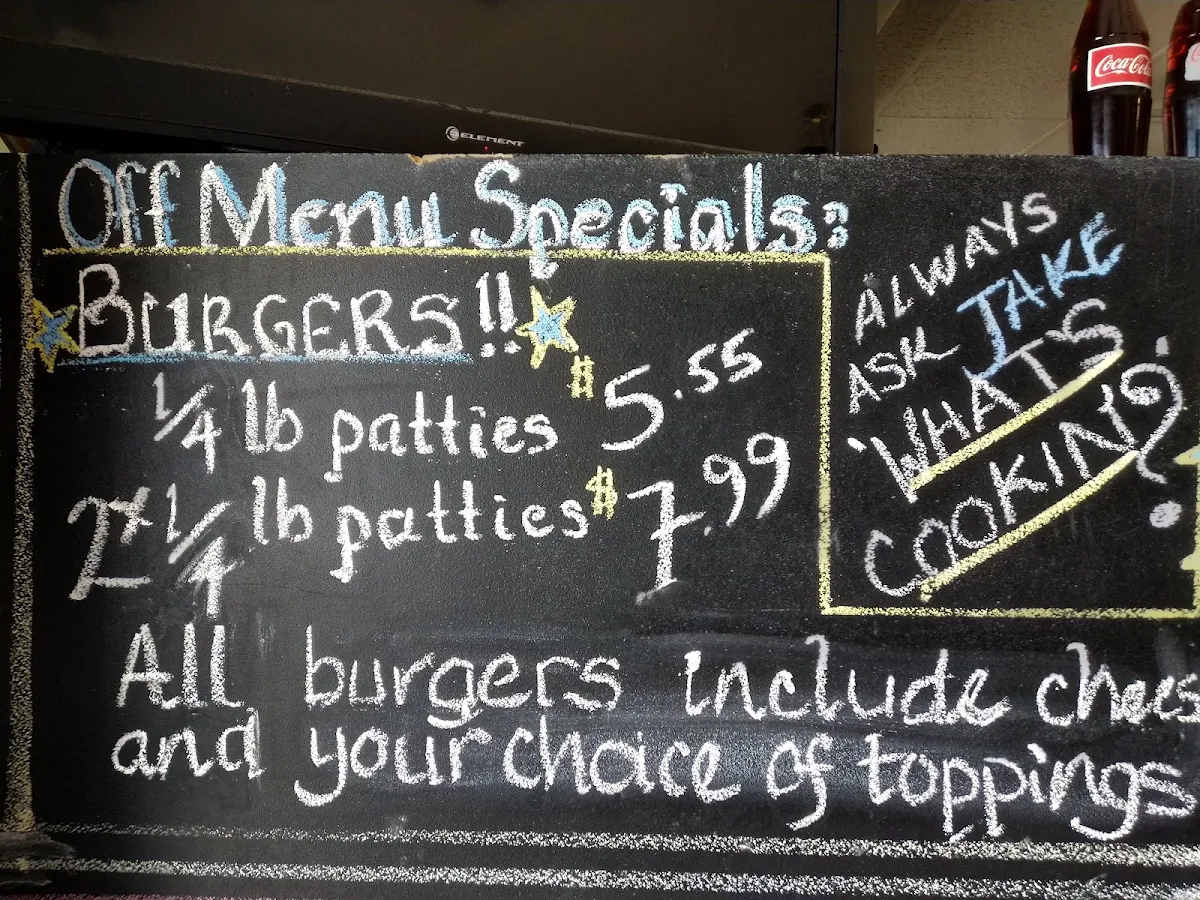 Coca-Cola
ELEMENT
Off Menu Specials:
BURGERS!!
1/4 lb patties $5.55
2x 1/4 lb patties $7.99
All burgers include chees
and your choice of toppings
ALWAYS
ASK JAKE
'WHATS
COOKIN'?